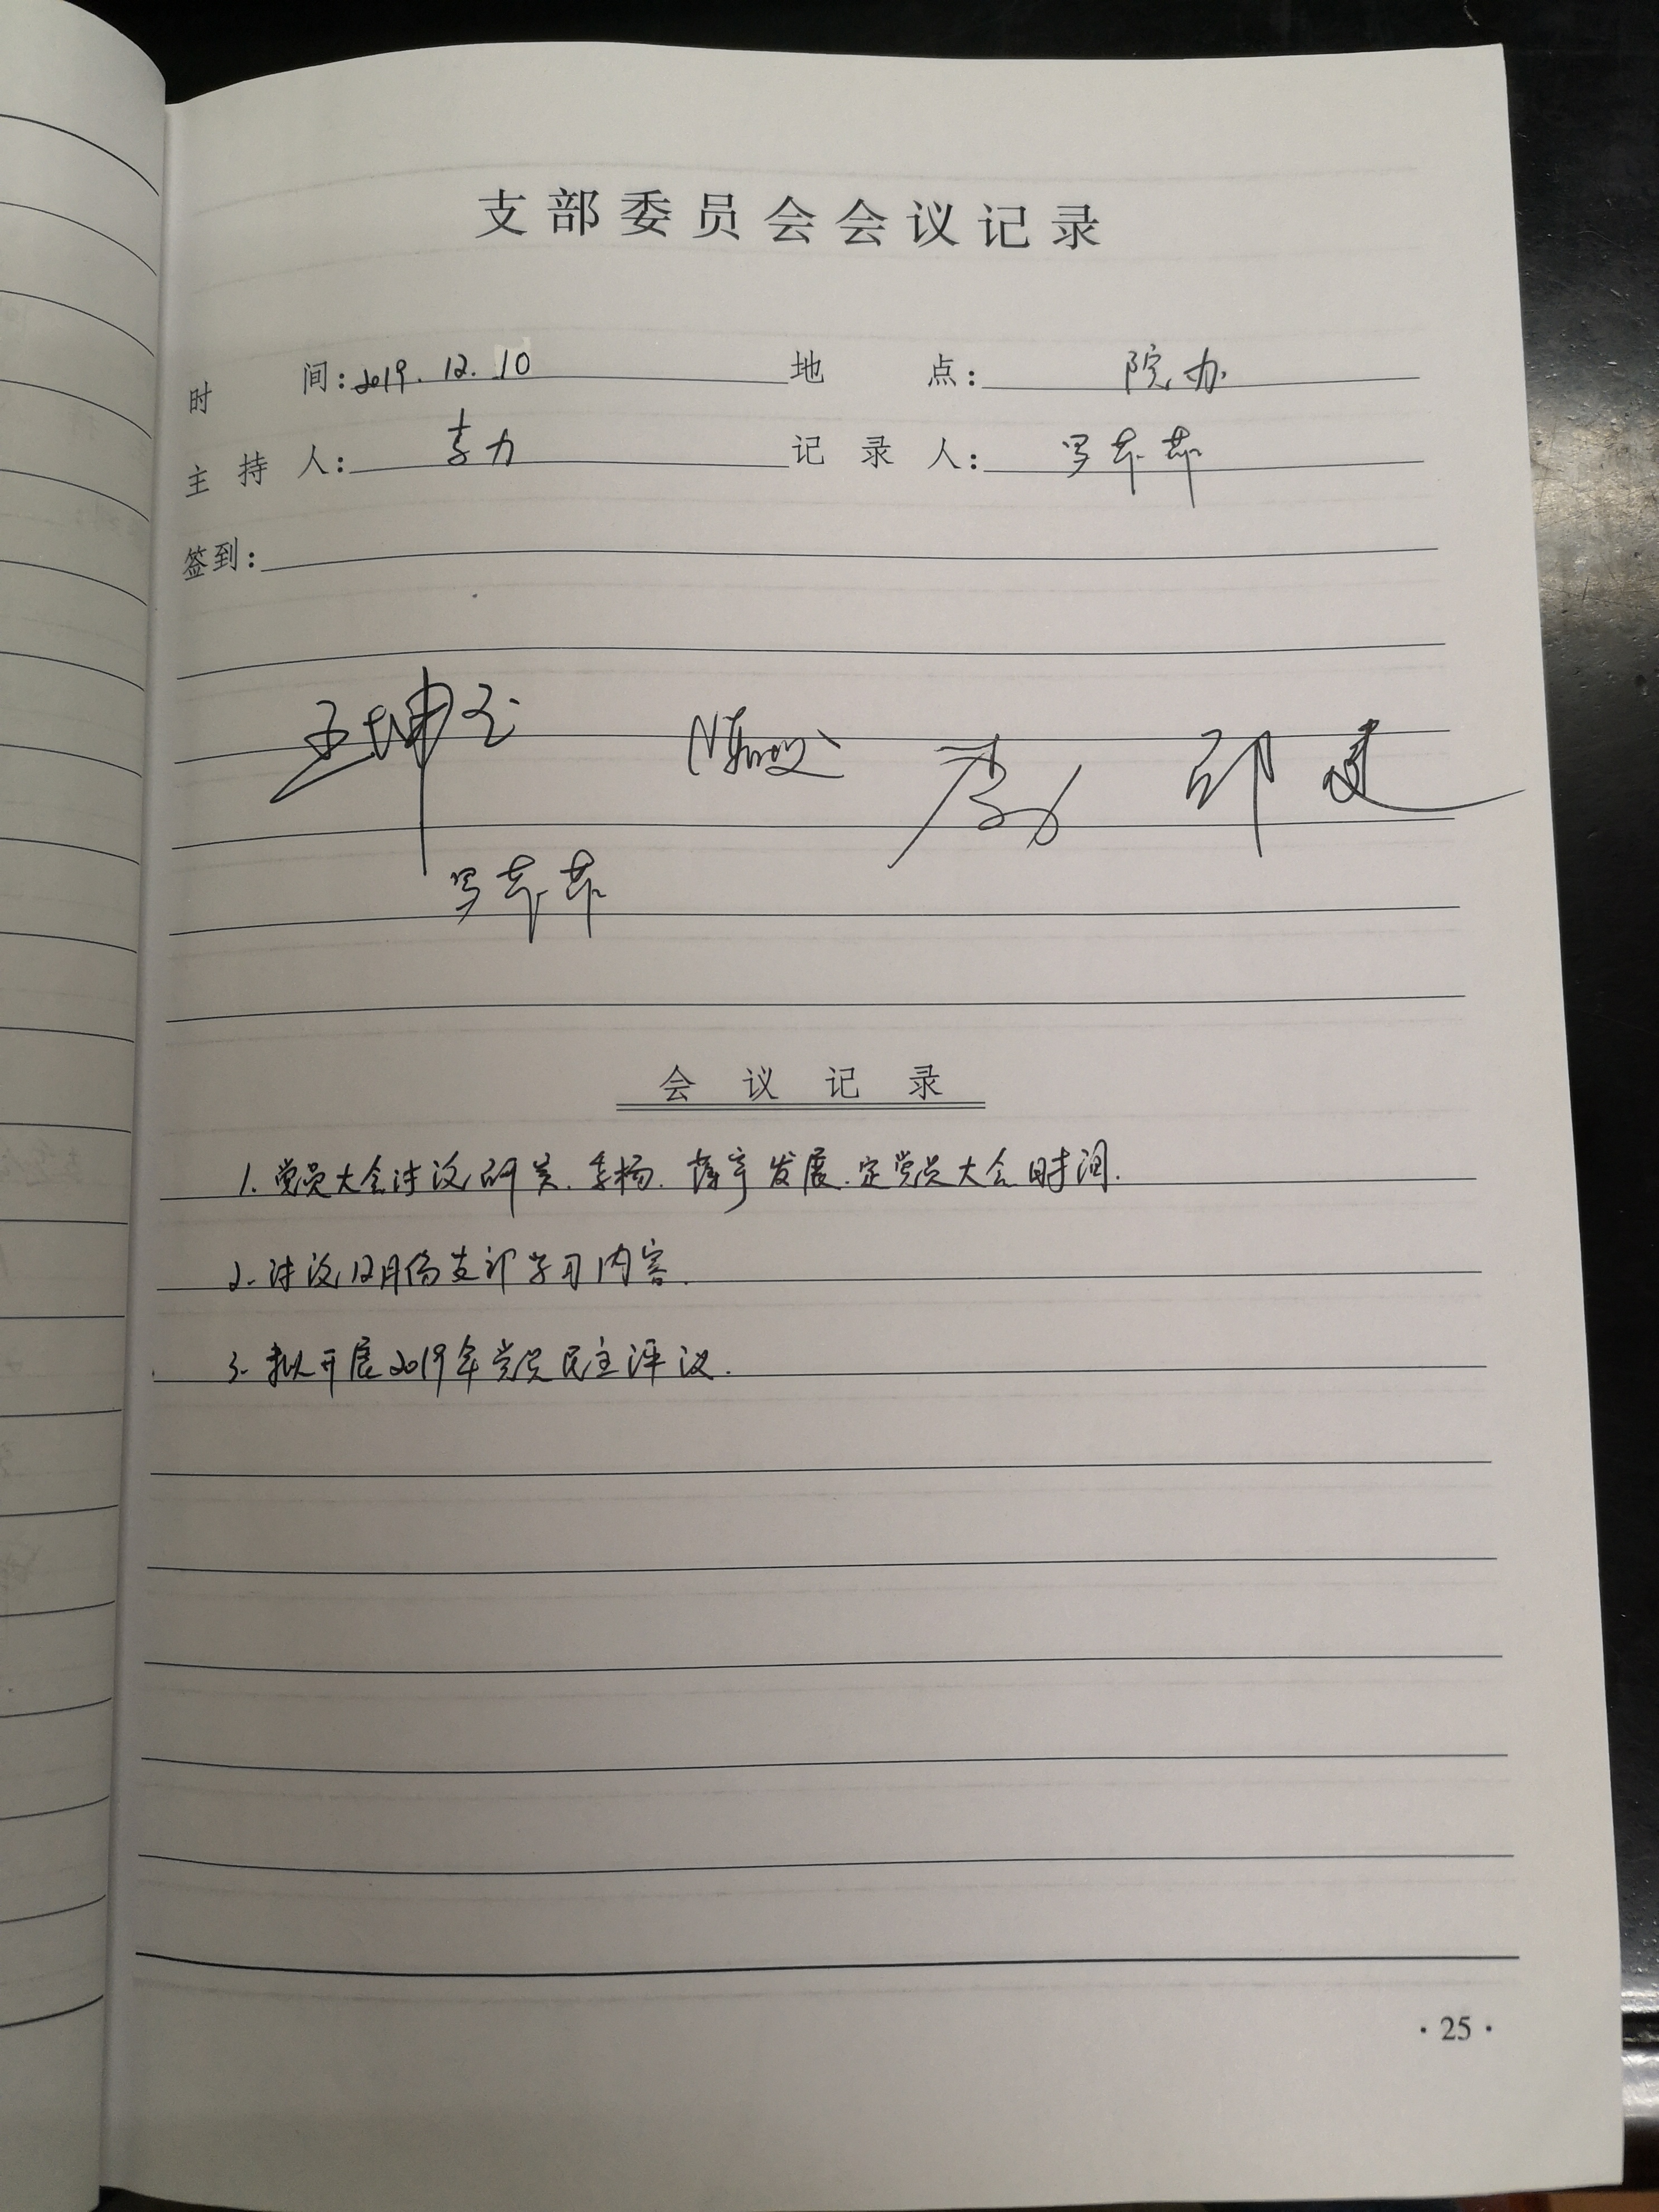 支部委员会会议记录
时间:2019.12.10 地点:院办
主持人:李力 记录人:罗芬芬
签到:
王坤 李力 邱建
罗芬芬
会议记录
1.党员大会讨议研美.李杨.薛宇发展.定党员大会时间.
2.讨议12月份支部学习内容.
3.拟开展2019年党员民主评议.
·25·